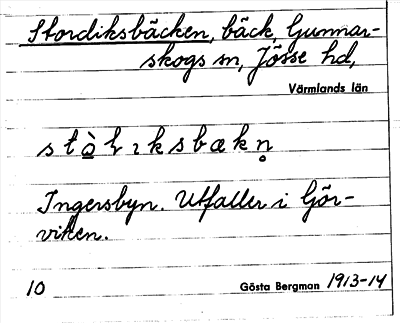 Stordiksbäcken, bäck, Gunnar-
skogs sn, Jösse hd,
Värmlands län
Ingersbyn. Utfaller i Gör-
viken.
10 Gösta Bergman 1913-14